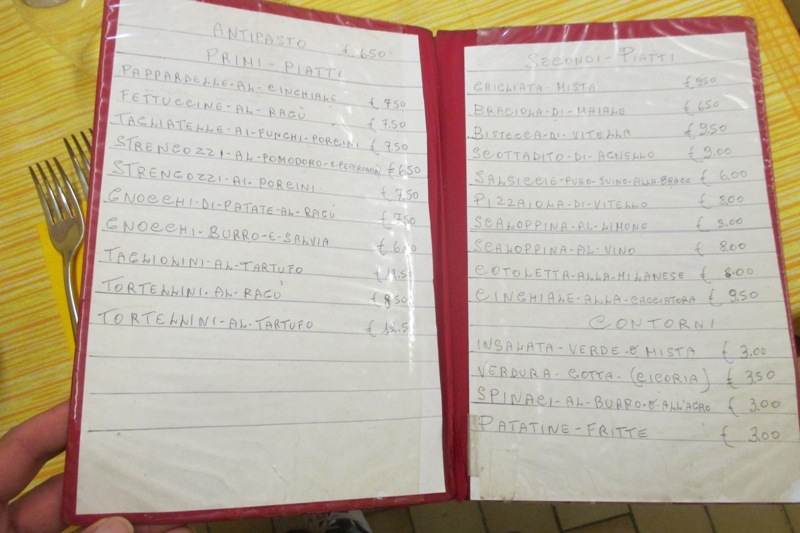 ANTIPASTO £ 6.50
PRIMI-PIATTI
PAPPARDELLE-AL-CINGHIALE £ 7.50
FETTUCCINE-AL-RAGÙ £ 7.50
TAGLIATELLE-AI-FUNGHI-PORCINI £ 7.50
STRENGOZZI-AL-POMODORO-E-PEPERONCINI £ 6.50
STRENGOZZI-AI-PORCINI £ 7.50
GNOCCHI-DI-PATATE-AL-RAGÙ £ 7.50
GNOCCHI-BURRO-E-SALVIA £
TAGLIOLINI-AL-TARTUFO £ 12.50
TORTELLINI-AL-RAGÙ £ 8.50
TORTELLINI-AL-TARTUFO £ 12.5
SECONDI-PIATTI
GRIGLIATA-MISTA £ 9.50
BRACIOLA-DI-MAIALE £ 6.50
BISTECCA-DI-VITELLA £ 9.50
SCOTTADITO-DI-AGNELLO £ 9.00
SALSICCIE-PURO-SUINO-ALLA-BRACE £ 6.00
PIZZAIOLA-DI-VITELLO £ 8.00
SCALOPPINA-AL-LIMONE £ 8.00
SCALOPPINA-AL-VINO £ 8.00
COTOLETTA-ALLA-MILANESE £ 8.00
CINGHIALE-ALLA-CACCIATORA £ 9.50
CONTORNI
INSALATA-VERDE-O-MISTA £ 3.00
VERDURA-COTTA-(CICORIA) £ 3.50
SPINACI-AL-BURRO-O-ALL'AGRO £ 3.00
PATATINE-FRITTE £ 3.00